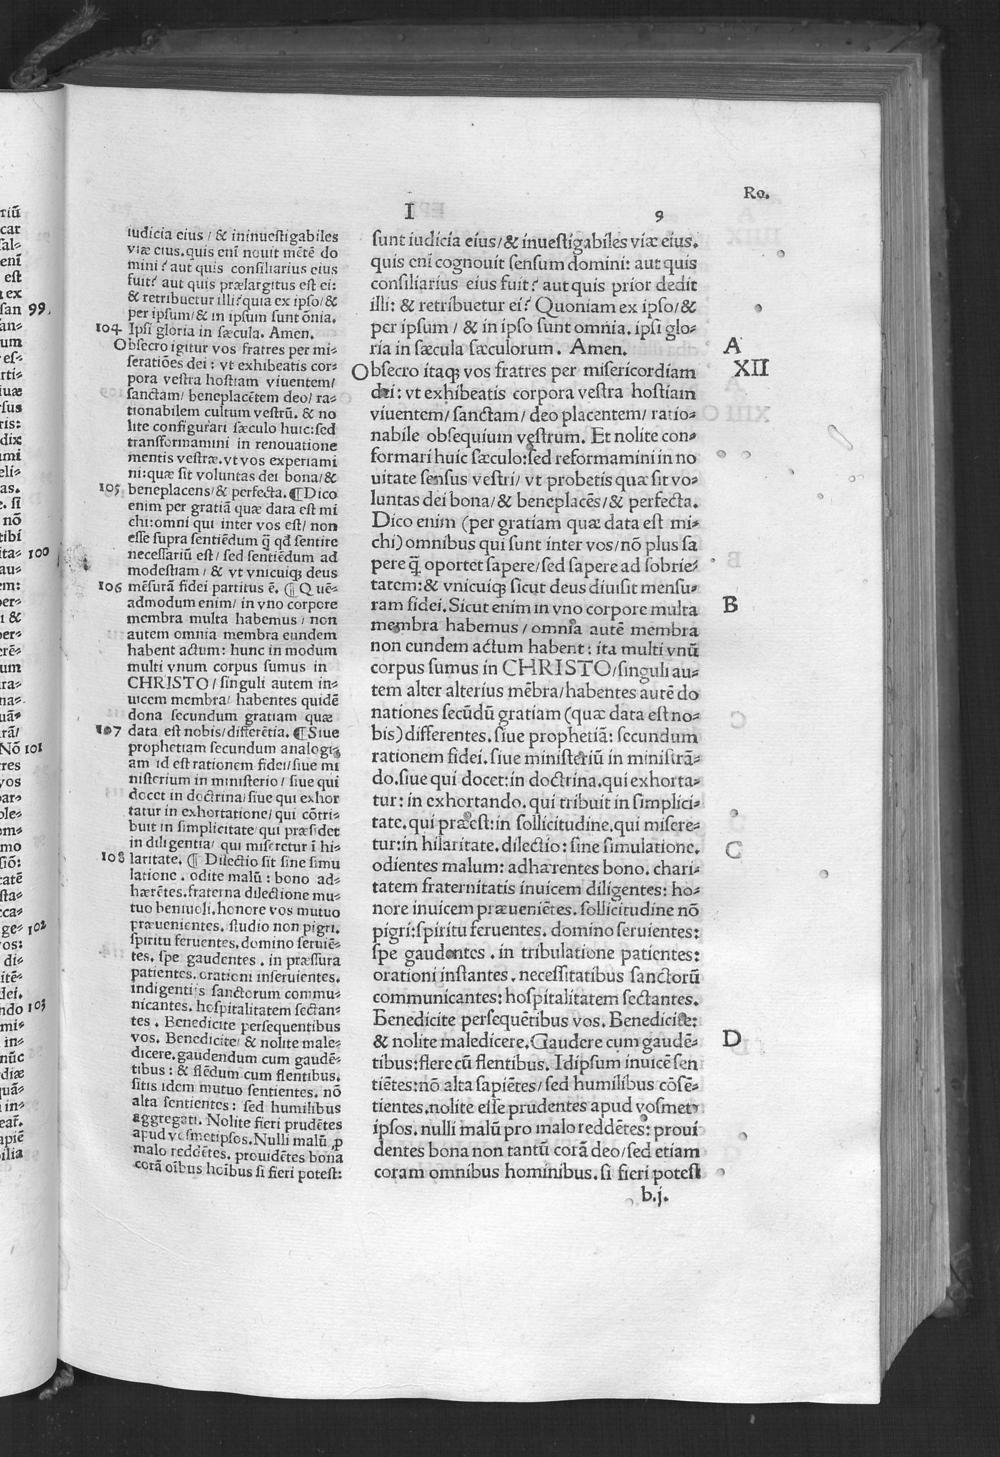 Ro.
I 9
iudicia eius / & ininuestigabiles
viæ eius. quis enī nouit mētē do
mini? aut quis consiliarius eius
fuit? aut quis prælargitus est ei:
& retribuetur illi? quia ex ipso/&
per ipsum/& in ipsum sunt ōnia.
104 Ipsi gloria in sæcula. Amen.
Obsecro igitur vos fratres per mi⸗
seratiōes dei : vt exhibeatis cor⸗
pora vestra hostiam viuentem/
sanctam/ beneplacētem deo/ ra⸗
tionabilem cultum vestrū. & no
lite configurari sæculo huic: sed
transformamini in renouatione
mentis vestræ. vt vos experiami
ni: quæ sit voluntas dei bona/&
105 beneplacens/& perfecta. ¶Dico
enim per gratiā quæ data est mi
chi: omni qui inter vos est/ non
esse supra sentiēdum q̄ qd sentire
necessariū est/ sed sentiēdum ad
modestiam/ & vt vnicuiqꝫ deus
106 mēsurā fidei partitus ē. ¶Quē⸗
admodum enim/ in vno corpore
membra multa habemus/ non
autem omnia membra eundem
habent actum: hunc in modum
multi vnum corpus sumus in
CHRISTO/ singuli autem in⸗
uicem membra/ habentes quidē
dona secundum gratiam quæ
107 data est nobis/differētia. ¶Siue
prophetiam secundum analogi⸗
am id est rationem fidei/siue mi
nisterium in ministerio/ siue qui
docet in doctrina/ siue qui exhor
tatur in exhortatione/ qui cōtri⸗
buit in simplicitate/ qui præsidet
in diligentia/ qui miseretur ī hi⸗
108 laritate. ¶ Dilectio sit sine simu
latione. odite malū : bono ad⸗
hærētes. fraterna dilectione mu⸗
tuo beniuoli. honore vos mutuo
præuenientes. studio non pigri.
spiritu feruentes. domino seruiē⸗
tes. spe gaudentes . in præssura
patientes. orationi inseruientes.
indigentijs sanctorum commu⸗
nicantes. hospitalitatem sectan⸗
tes . Benedicite persequentibus
vos. Benedicite/ & nolite male⸗
dicere. gaudendum cum gaudē⸗
tibus : & flēdum cum flentibus.
sitis idem mutuo sentientes. nō
alta sentientes : sed humilibus
aggregati. Nolite fieri prudētes
apud vosmetipsos. Nulli malū ꝓ
malo reddētes. prouidētes bona
corā oībus hoībus si fieri potest:
sunt iudicia eius/& inuestigabiles viæ eius.
quis enī cognouit sensum domini: aut quis
consiliarius eius fuit? aut quis prior dedit
illi: & retribuetur ei? Quoniam ex ipso/&
per ipsum / & in ipso sunt omnia. ipsi glo⸗
ria in sæcula sæculorum. Amen. A
Obsecro itaqꝫ vos fratres per misericordiam XII
dei: vt exhibeatis corpora vestra hostiam
viuentem/ sanctam/ deo placentem/ ratio⸗
nabile obsequium vestrum. Et nolite con⸗
formari huic sæculo: sed reformamini in no
uitate sensus vestri/ vt probetis quæ sit vo⸗
luntas dei bona/& beneplacēs/& perfecta.
Dico enim (per gratiam quæ data est mi⸗
chi) omnibus qui sunt inter vos/ nō plus sa
pere q̄ oportet sapere/ sed sapere ad sobrie⸗
tatem: & vnicuiqꝫ sicut deus diuisit mensu⸗
ram fidei. Sicut enim in vno corpore multa B
membra habemus / omnia autē membra
non eundem actum habent: ita multi vnū
corpus sumus in CHRISTO/singuli au⸗
tem alter alterius mēbra/habentes autē do
nationes secūdū gratiam (quæ data est no⸗
bis) differentes. siue prophetiā: secundum
rationem fidei. siue ministeriū in ministrā⸗
do. siue qui docet: in doctrina. qui exhorta⸗
tur: in exhortando. qui tribuit in simplici⸗
tate. qui præest: in sollicitudine. qui misere⸗
tur: in hilaritate. dilectio: sine simulatione. C
odientes malum: adhærentes bono. chari⸗
tatem fraternitatis inuicem diligentes: ho⸗
nore inuicem præueniētes. sollicitudine nō
pigri: spiritu feruentes. domino seruientes:
spe gaudentes . in tribulatione patientes:
orationi instantes. necessitatibus sanctorū
communicantes: hospitalitatem sectantes.
Benedicite persequētibus vos. Benedicite:
& nolite maledicere. Gaudere cum gaudē⸗ D
tibus: flere cū flentibus. Idipsum inuicē sen
tiētes: nō alta sapiētes/ sed humilibus cōsē⸗
tientes. nolite esse prudentes apud vosmet
ipsos. nulli malū pro malo reddētes: proui
dentes bona non tantū corā deo/sed etiam
coram omnibus hominibus. si fieri potest
b.j.